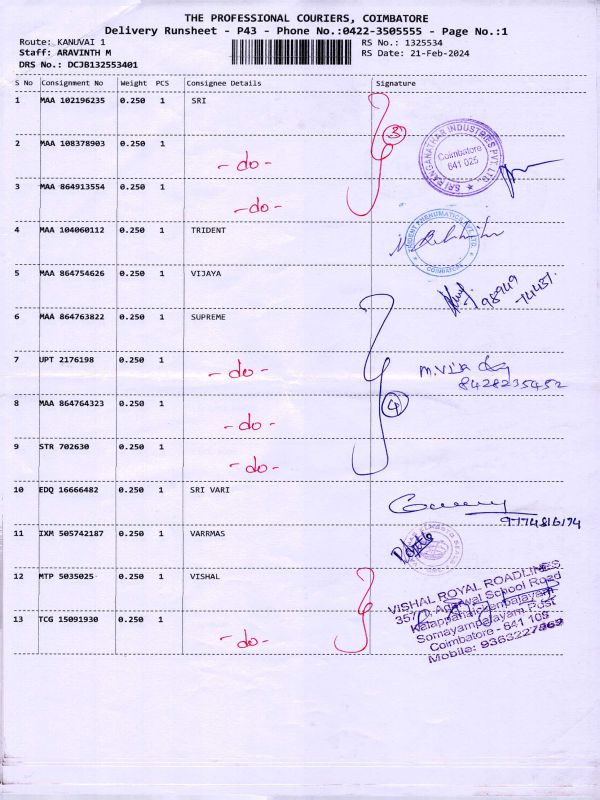 THE PROFESSIONAL COURIERS, COIMBATORE
Delivery Runsheet - P43 - Phone No.:0422-3505555 - Page No.:1
Route: KANUVAI 1 RS No.: 1325534
Staff: ARAVINTH M RS Date: 21-Feb-2024
DRS No.: DCJB132553401
S No Consignment No Weight PCS Consignee Details Signature
1 MAA 102196235 0.250 1 SRI
2 MAA 108378903 0.250 1 - do -
3 MAA 864913554 0.250 1 - do -
3
SRI RANGANATHAR INDUSTRIES PVT. LTD.
Coimbatore
641 025
4 MAA 104060112 0.250 1 TRIDENT
TRIDENT PNEUMATICS PVT. LTD.
COIMBATORE
5 MAA 864754626 0.250 1 VIJAYA
98949
74437
6 MAA 864763822 0.250 1 SUPREME
7 UPT 2176198 0.250 1 - do -
8428235452
8 MAA 864764323 0.250 1 - do -
4
9 STR 702630 0.250 1 - do -
10 EDQ 16666482 0.250 1 SRI VARI
9174816174
11 IXM 505742187 0.250 1 VARRMAS
12 MTP 5035025 0.250 1 VISHAL
13 TCG 15091930 0.250 1 - do -
VISHAL ROYAL ROADLINES
Agarwal School Road
Somayampalayam Post
Coimbatore - 641 108
Mobile: 9363227363